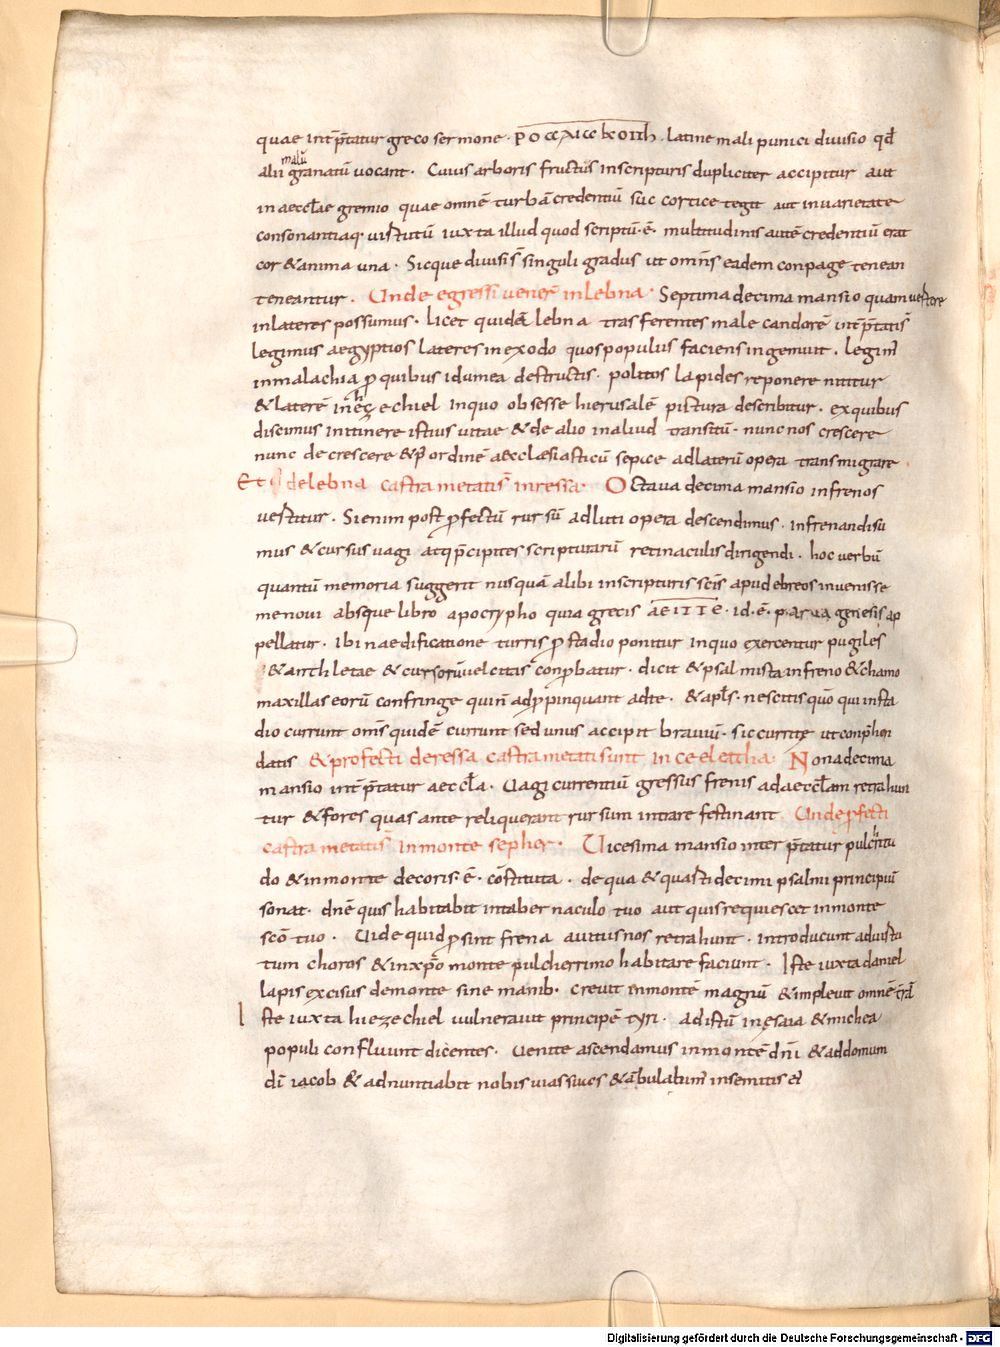 quae int̄p̄tatur greco sermone · latine mali punici diuisio qđ
malū
alii granatū uocant · Cuius arboris fructus inscripturis dupliciter accipitur aut
in aeccłae gremio quae omnē turbā credentiū suę cortice tegit aut inuarietate
consonantiaq; uirtutū iuxta illud quod scriptū · ē · multitudinis autē credentiū erat
cor & anima una · Sicque diuisis singuli gradus ut omn̄s eadem conpage tenean
teneantur · Unde egressi uener̄ inlebna · Septima decima mansio quam uertere
inlateres possumus · licet quidā lebna trasferentes male candorē int̄p̄tatis̄
legimus aegyptios lateres inexodo quos populus faciens ingemuit · legim̄
inmalachia p quibus idumea destructis · politos lapides reponere nititur
& laterē inhęzechiel inquo obsesse hierusalē pictura describitur · exquibus
discimus initinere istius uitae & de alio inaliud transitū · nunc nos crescere
nunc decrescere & p ordinē aecclesiasticū sepice adlaterū opera transmigrare ·
Et delebna castrametatis̄ inressa · Octaua decima mansio infrenos
uertitur · Sienim post pfectū rursū adluti opera descendimus · infrenandisu
mus & cursus uagi atq; p̄cipites scripturarū retinaculis dirigendi · hoc uerbū
quantū memoria suggerit nusquā alibi inscripturis scīs apud ebreos inuenisse
menoui absque libro apocrypho quia grecis · id · ē · parua genesis ap
pellatur · ibi inaedificatione turris p stadio ponitur inquo exercentur pugiles
& anthletae & cursorū uelcitas conpbatur · dicit & psalmista infreno & chamo
maxillas eorū confringe quin̄ adppinquant adte · & apłs · nescitis quō qui insta
dio currunt omn̄s quidē currunt sed unus accipit brauiū · sic currite ut conp̄hen
datis & profecti deressa castrametati sunt inceelatha · Nonadecima
mansio int̄p̄tatur aeccła · Uagi currentiū gressus frenis adaecctłam retrahun
tur & fores quas ante reliquerant rursum intrare festinant · Unde pfecti
castrametatis̄ inmonte sepher · Uicesima mansio inter p̄tatur pulchritu
do & inmonte decoris · ē · cōstituta · dequa & quarti decimi psalmi principiū
sonat · dn̄e quis habitabit intabernaculo tuo aut quis requiescet inmonte
scō tuo · Uide quid psint frena auitiis nos retrahunt · introducunt aduirtu
tum choros & inxp̄o monte pulcherrimo habitare faciunt · Iste iuxta daniel
lapis excisus demonte sine manib · creuit inmontē magnū & impleuit omnē t̄rā
Iste iuxta hiezechiel uulnerauit principē tyri · adistū inesaia & michea
populi confluunt dicentes · uenite ascendamus inmontē dn̄i & addomum
dī iacob & adnuntiabit nobis uias suas & ābulabim̄ insemitis ei
Digitalisierung gefördert durch die Deutsche Forschungsgemeinschaft · DFG